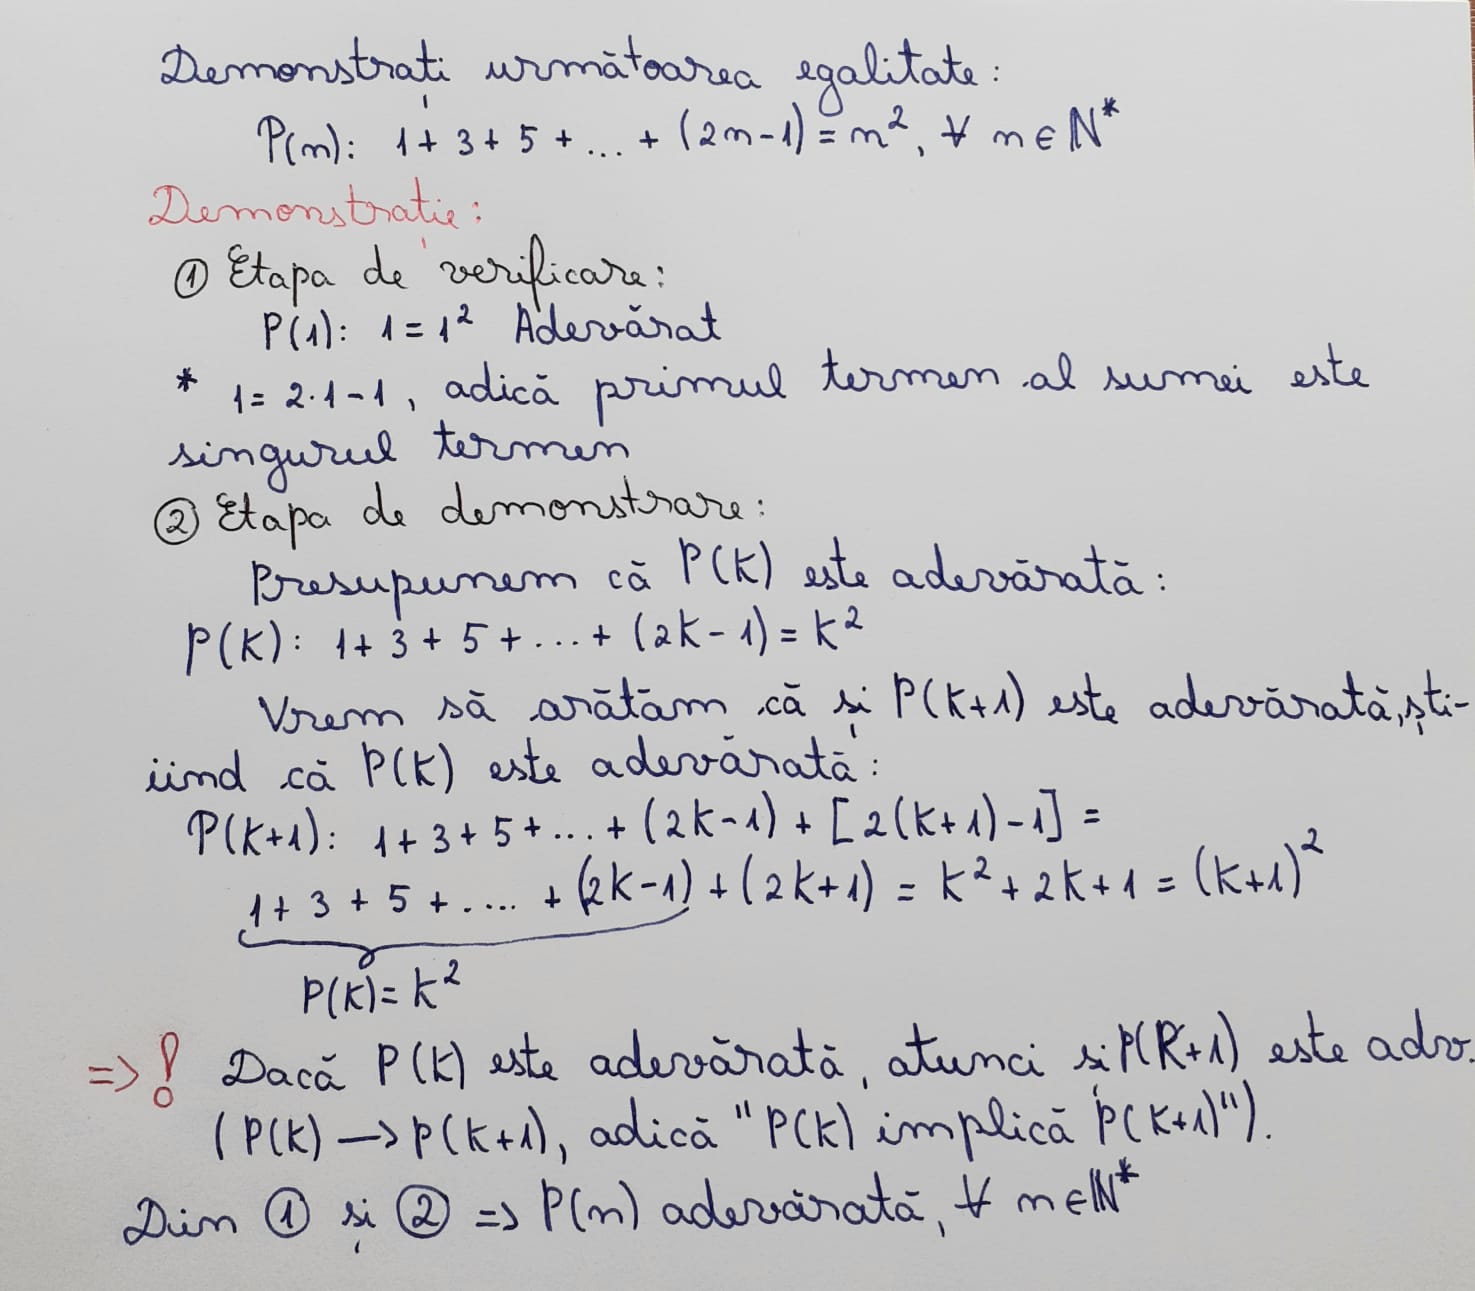 Demonstrați următoarea egalitate:
P(n): 1 + 3 + 5 + ... + (2n-1) = n², ∀ n ∈ ℕ*
Demonstrație:
① Etapa de verificare:
P(1): 1 = 1² Adevărat
* 1 = 2·1-1, adică primul termen al sumei este
singurul termen
② Etapa de demonstrare:
Presupunem că P(K) este adevărată:
P(K): 1 + 3 + 5 + ... + (2K-1) = K²
Vrem să arătăm că și P(K+1) este adevărată, ști-
iind că P(K) este adevărată:
P(K+1): 1 + 3 + 5 + ... + (2K-1) + [2(K+1)-1] =
1 + 3 + 5 + .... + (2K-1) + (2K+1) = K² + 2K + 1 = (K+1)²
P(K) = K²
=> ! Dacă P(K) este adevărată, atunci și P(K+1) este adv.
(P(K) → P(K+1), adică "P(K) implică P(K+1)").
Din ① și ② => P(n) adevărată, ∀ n ∈ ℕ*